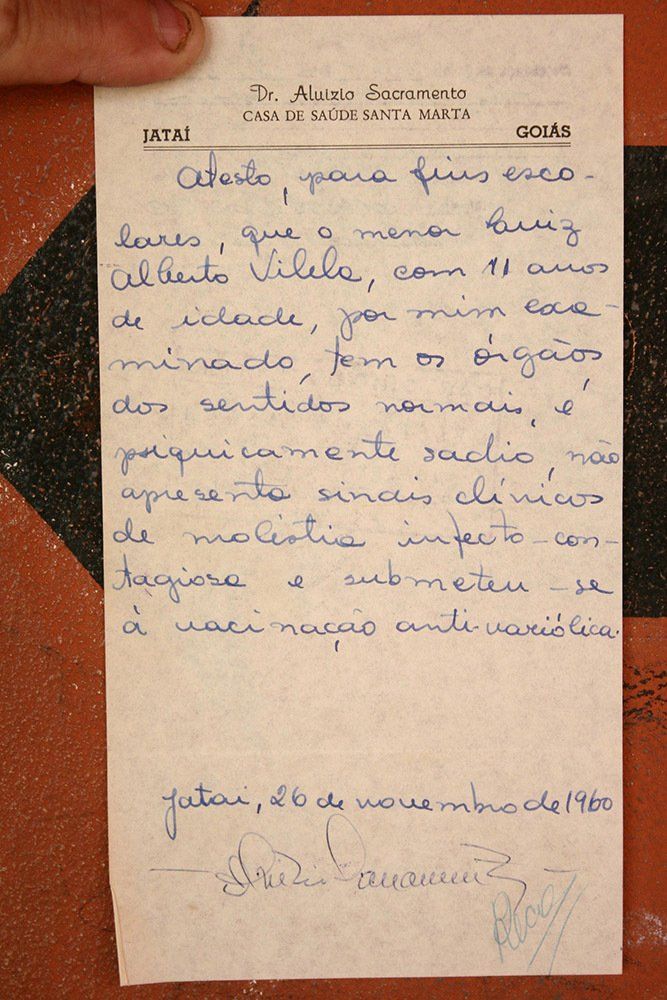 Dr. Aluizio Sacramento
CASA DE SAÚDE SANTA MARTA
JATAÍ GOIÁS
Atesto, para fins esco-
lares, que o menor Luiz
Alberto Vilela, com 11 anos
de idade, por mim exa-
minado, tem os órgãos
dos sentidos normais, é
psiquicamente sadio, não
apresenta sinais clínicos
de moléstia infecto-con-
tagiosa e submeteu-se
à vacinação anti-variólica.
Jatai, 26 de novembro de 1960